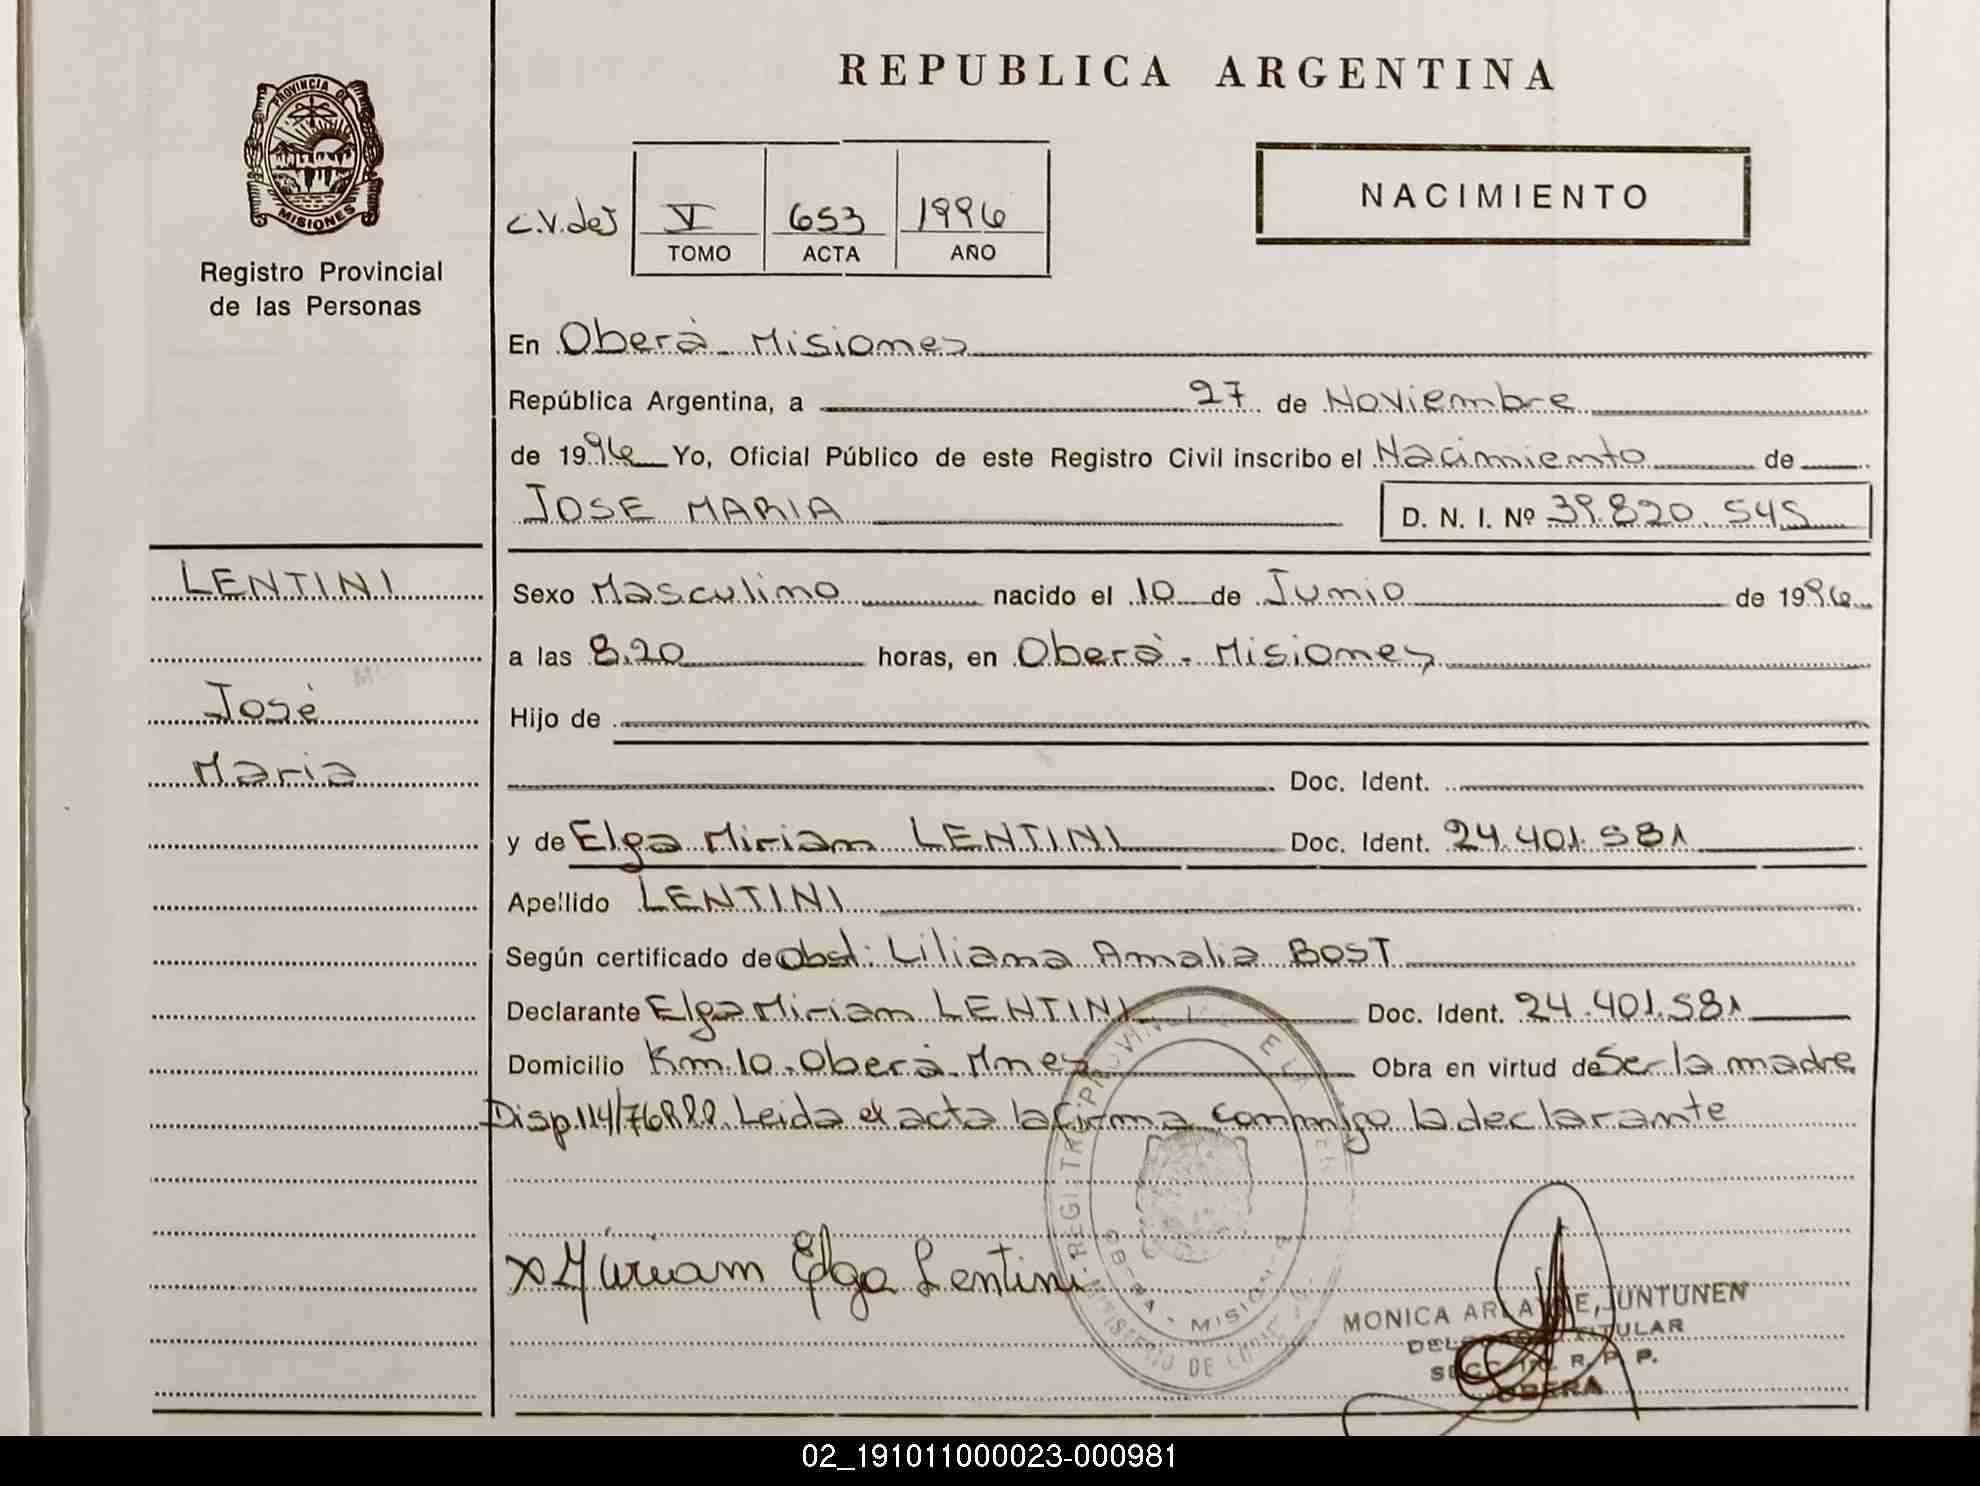 REPUBLICA ARGENTINA
PROVINCIA DE
MISIONES
Registro Provincial
de las Personas
C.V.deJ V 653 1996
TOMO ACTA AÑO
NACIMIENTO
En Oberà - Misiones
República Argentina, a 27 de Noviembre
de 1996 Yo, Oficial Público de este Registro Civil inscribo el Nacimiento de
JOSE MARIA D. N. I. Nº 39.820.545
LENTINI
José
Maria
Sexo Masculino nacido el 10 de Junio de 1996
a las 8.20 horas, en Oberà - Misiones
Hijo de
Doc. Ident.
y de Elga Miriam LENTINI Doc. Ident. 24.401.581
Apellido LENTINI
Según certificado de Obst: Liliana Amalia BOST
Declarante Elga Miriam LENTINI Doc. Ident. 24.401.581
Domicilio Km.10 - Oberà - Mnes Obra en virtud de Ser la madre
Disp. 114/76 Leida el acta la firma conmigo la declarante
Miriam Elga Lentini
OBERA - MISIONES
MONICA JUNTUNEN
TITULAR
R. P. P.
OBERA
02_191011000023-000981